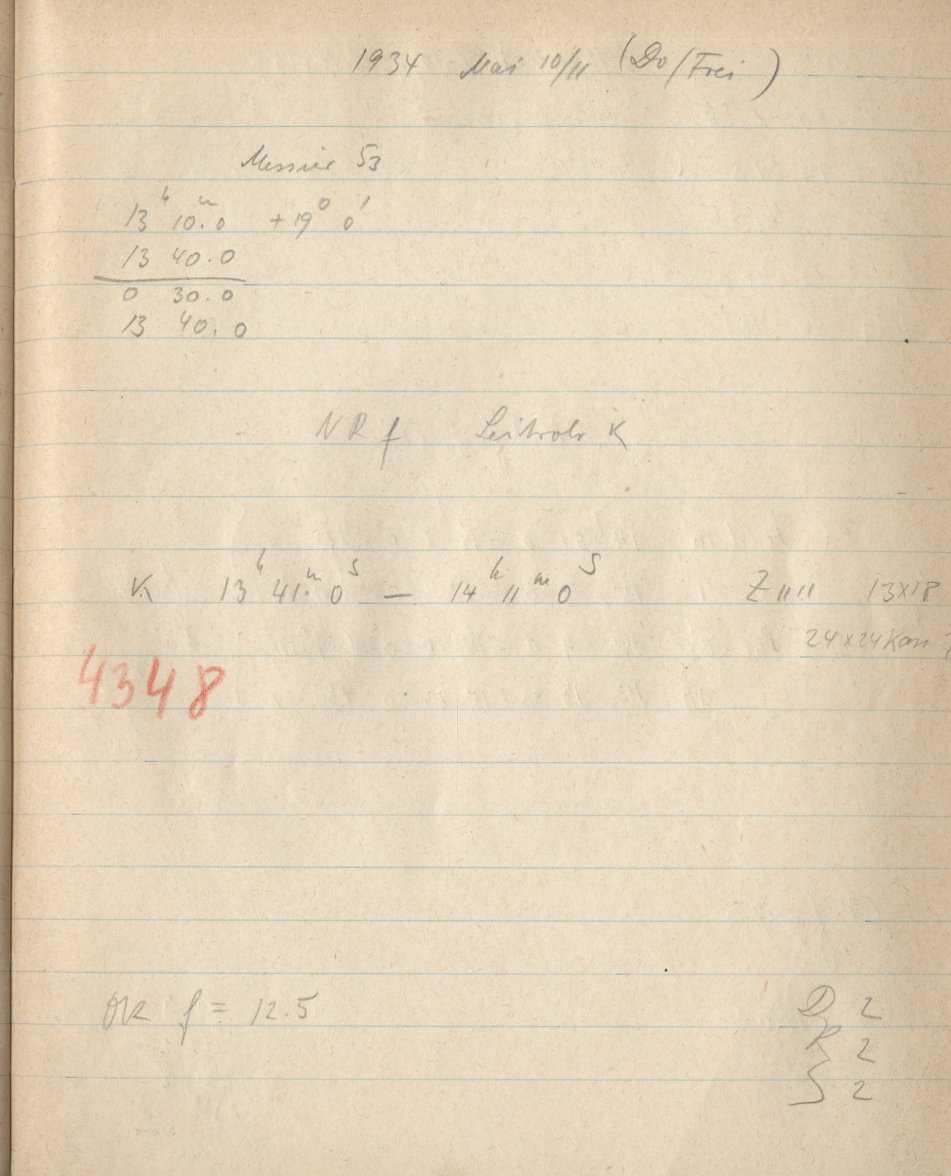 1934 Mai 10/11 (Do/Frei)
Messier 53
13ʰ 10ᵐ.0 +19° 0'
13 40.0
0 30.0
13 40.0
NR f Leitrohr K
K 13ʰ 41ᵐ 0ˢ — 14ʰ 11ᵐ 0ˢ Z 1111 13x18
24x24 Kass
4348
f = 12.5
D 2
R 2
S 2